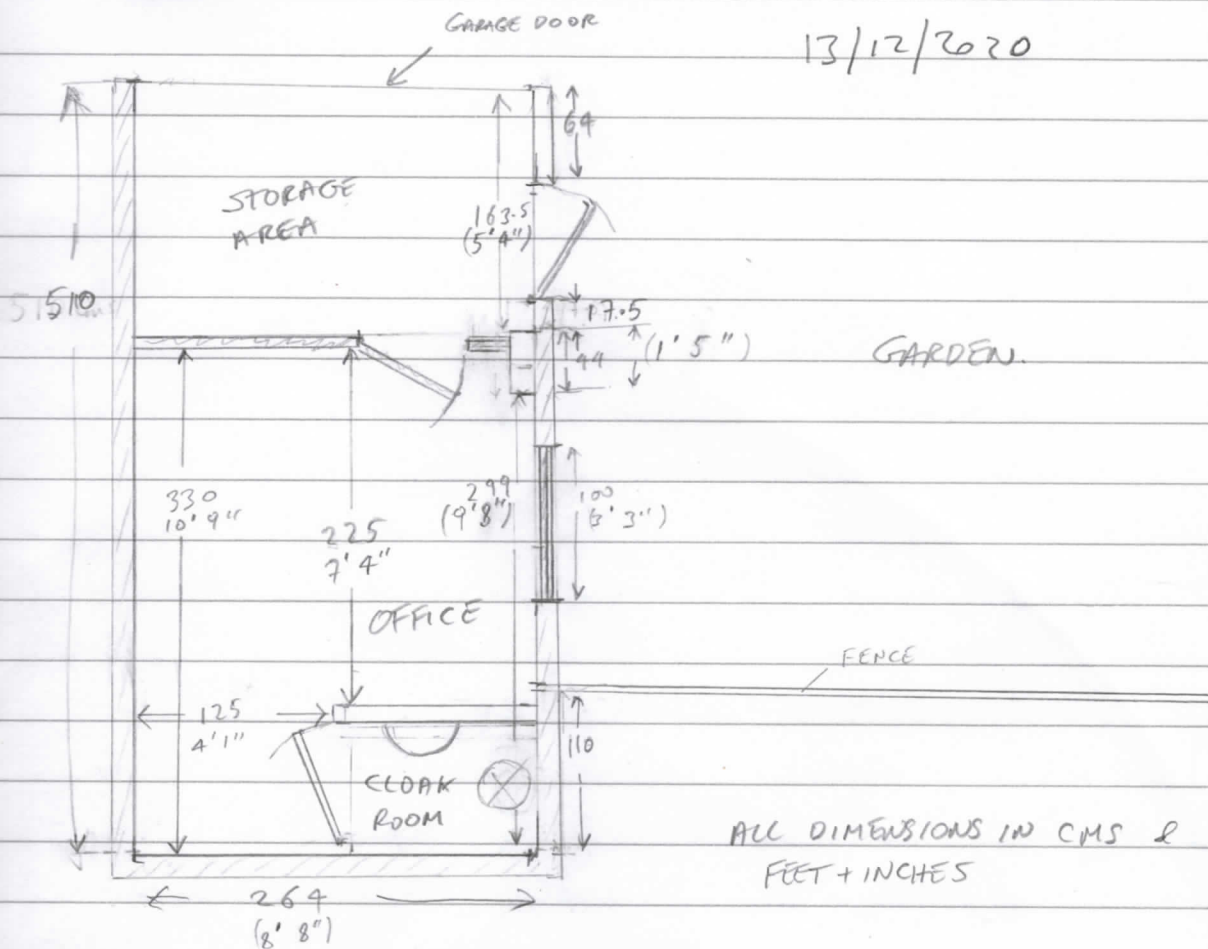 GARAGE DOOR
13/12/2020
64
STORAGE
AREA
163.5
(5'4")
510
17.5
44
(1'5")
GARDEN.
330
10'9"
299
(9'8")
100
(3'3")
225
7'4"
OFFICE
FENCE
125
4'1"
110
CLOAK
ROOM
ALL DIMENSIONS IN CMS &
FEET + INCHES
264
(8'8")